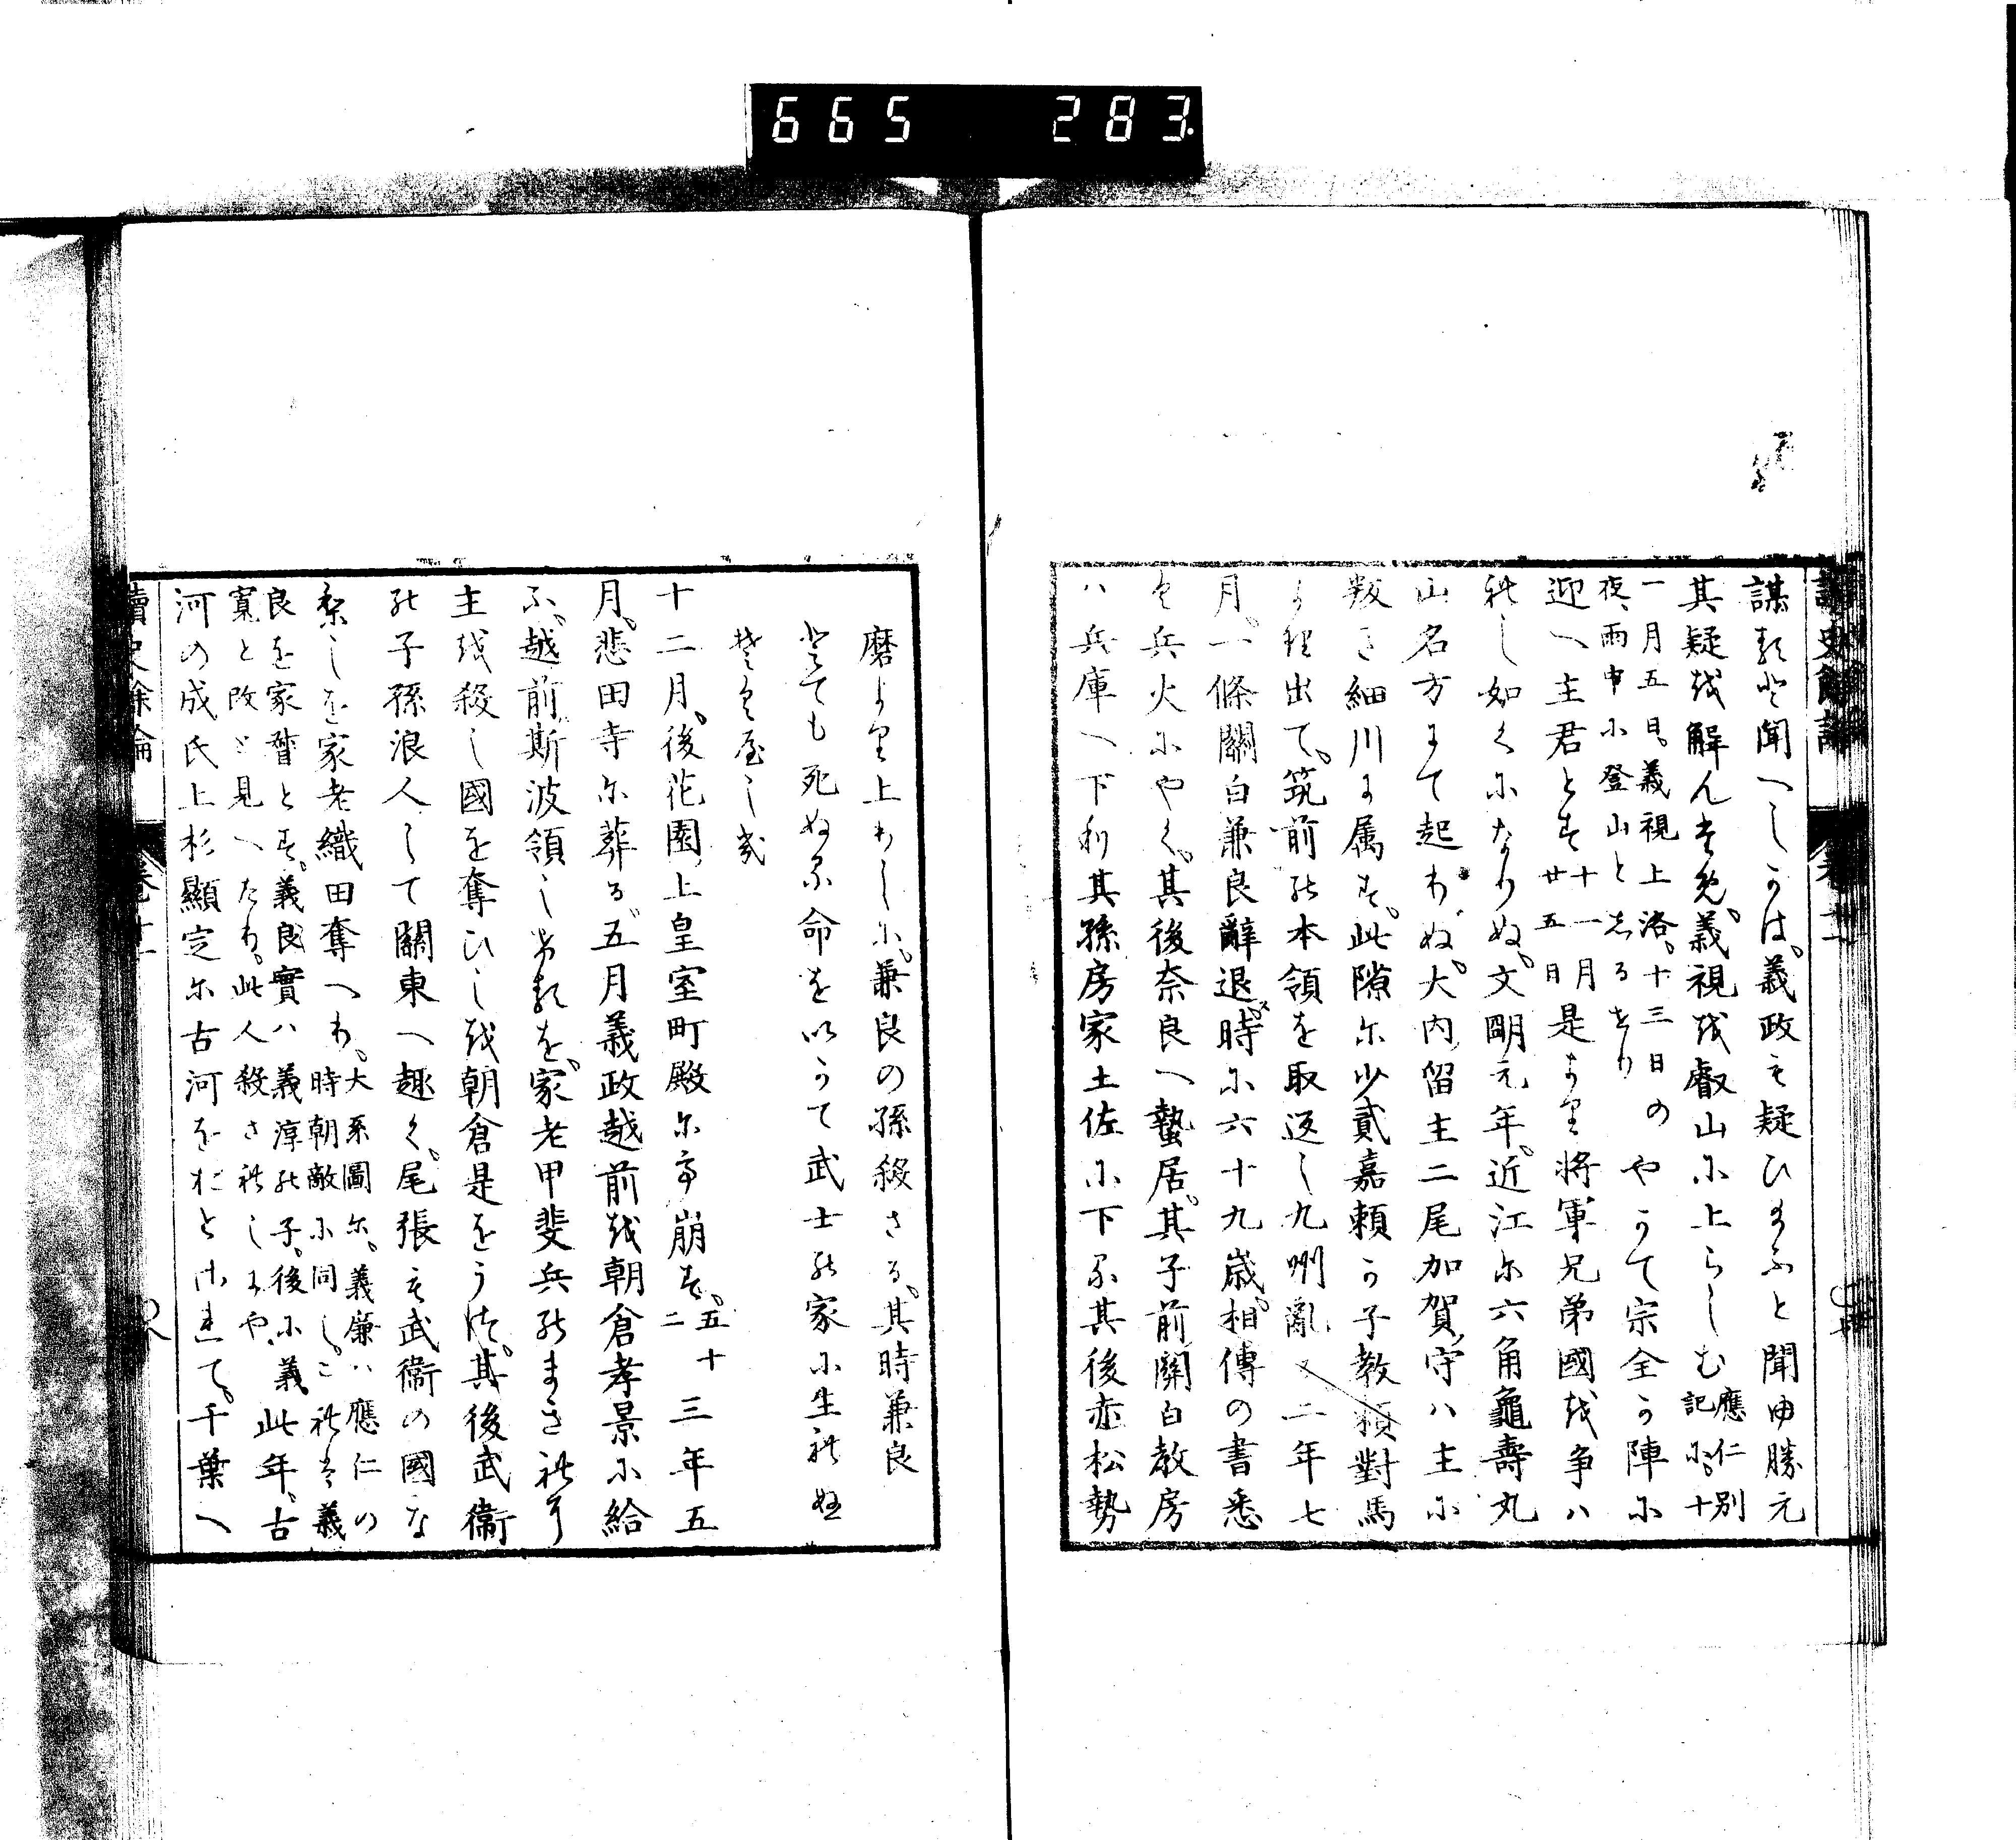 665 283
讀史餘論 卷十一
謀れると聞へしかは、義政も疑ひ給ふと聞ゆ勝元
其疑を解んため、義視を叡山に上らしむ 應仁別
記に、十
一月五日、義視上洛、十三日の
夜、雨中に登山とあるなり やかて宗全か陣に
迎へ主君とす 十一月
廿五日 是より将軍兄弟國を争ハ
れし如くになりぬ、文明元年、近江に六角龜壽丸
山名方にて起りぬ、大内留主二尾加賀守ハ主に
叛き細川に属す、此隙に少貳嘉頼か子教頼對馬
より出て、筑前の本領を取返し九州亂 二年七
月、一條關白兼良辭退、時に六十九歳、相傳の書悉
く兵火にやく、其後奈良へ蟄居、其子前關白教房
ハ兵庫へ下り其孫房家土佐に下る其後赤松勢
磨より上りしに、兼良の孫殺さる、其時兼良
とても死ぬる命をいかて武士の家に生れぬ
そくやしき
十二月、後花園上皇室町殿に而崩す、五十
二 三年五
月、悲田寺に葬る、五月義政越前を朝倉孝景に給
ふ、越前斯波領しけるを、家老甲斐兵のまき れ
主を殺し國を奪ひしを朝倉是をうつ、其後武衞
の子孫浪人して關東へ趣く、尾張も武衞の國な
りしを家老織田奪へり、大系圖に、義廉ハ應仁の
時朝敵に同し、これハ義
良を家督とす、義良實ハ義淳の子、後に義
寛と改と見へたり、此人殺されしにや、 此年、古
河の成氏上杉顯定に古河をおとされて、千葉へ
讀史餘論 卷十一